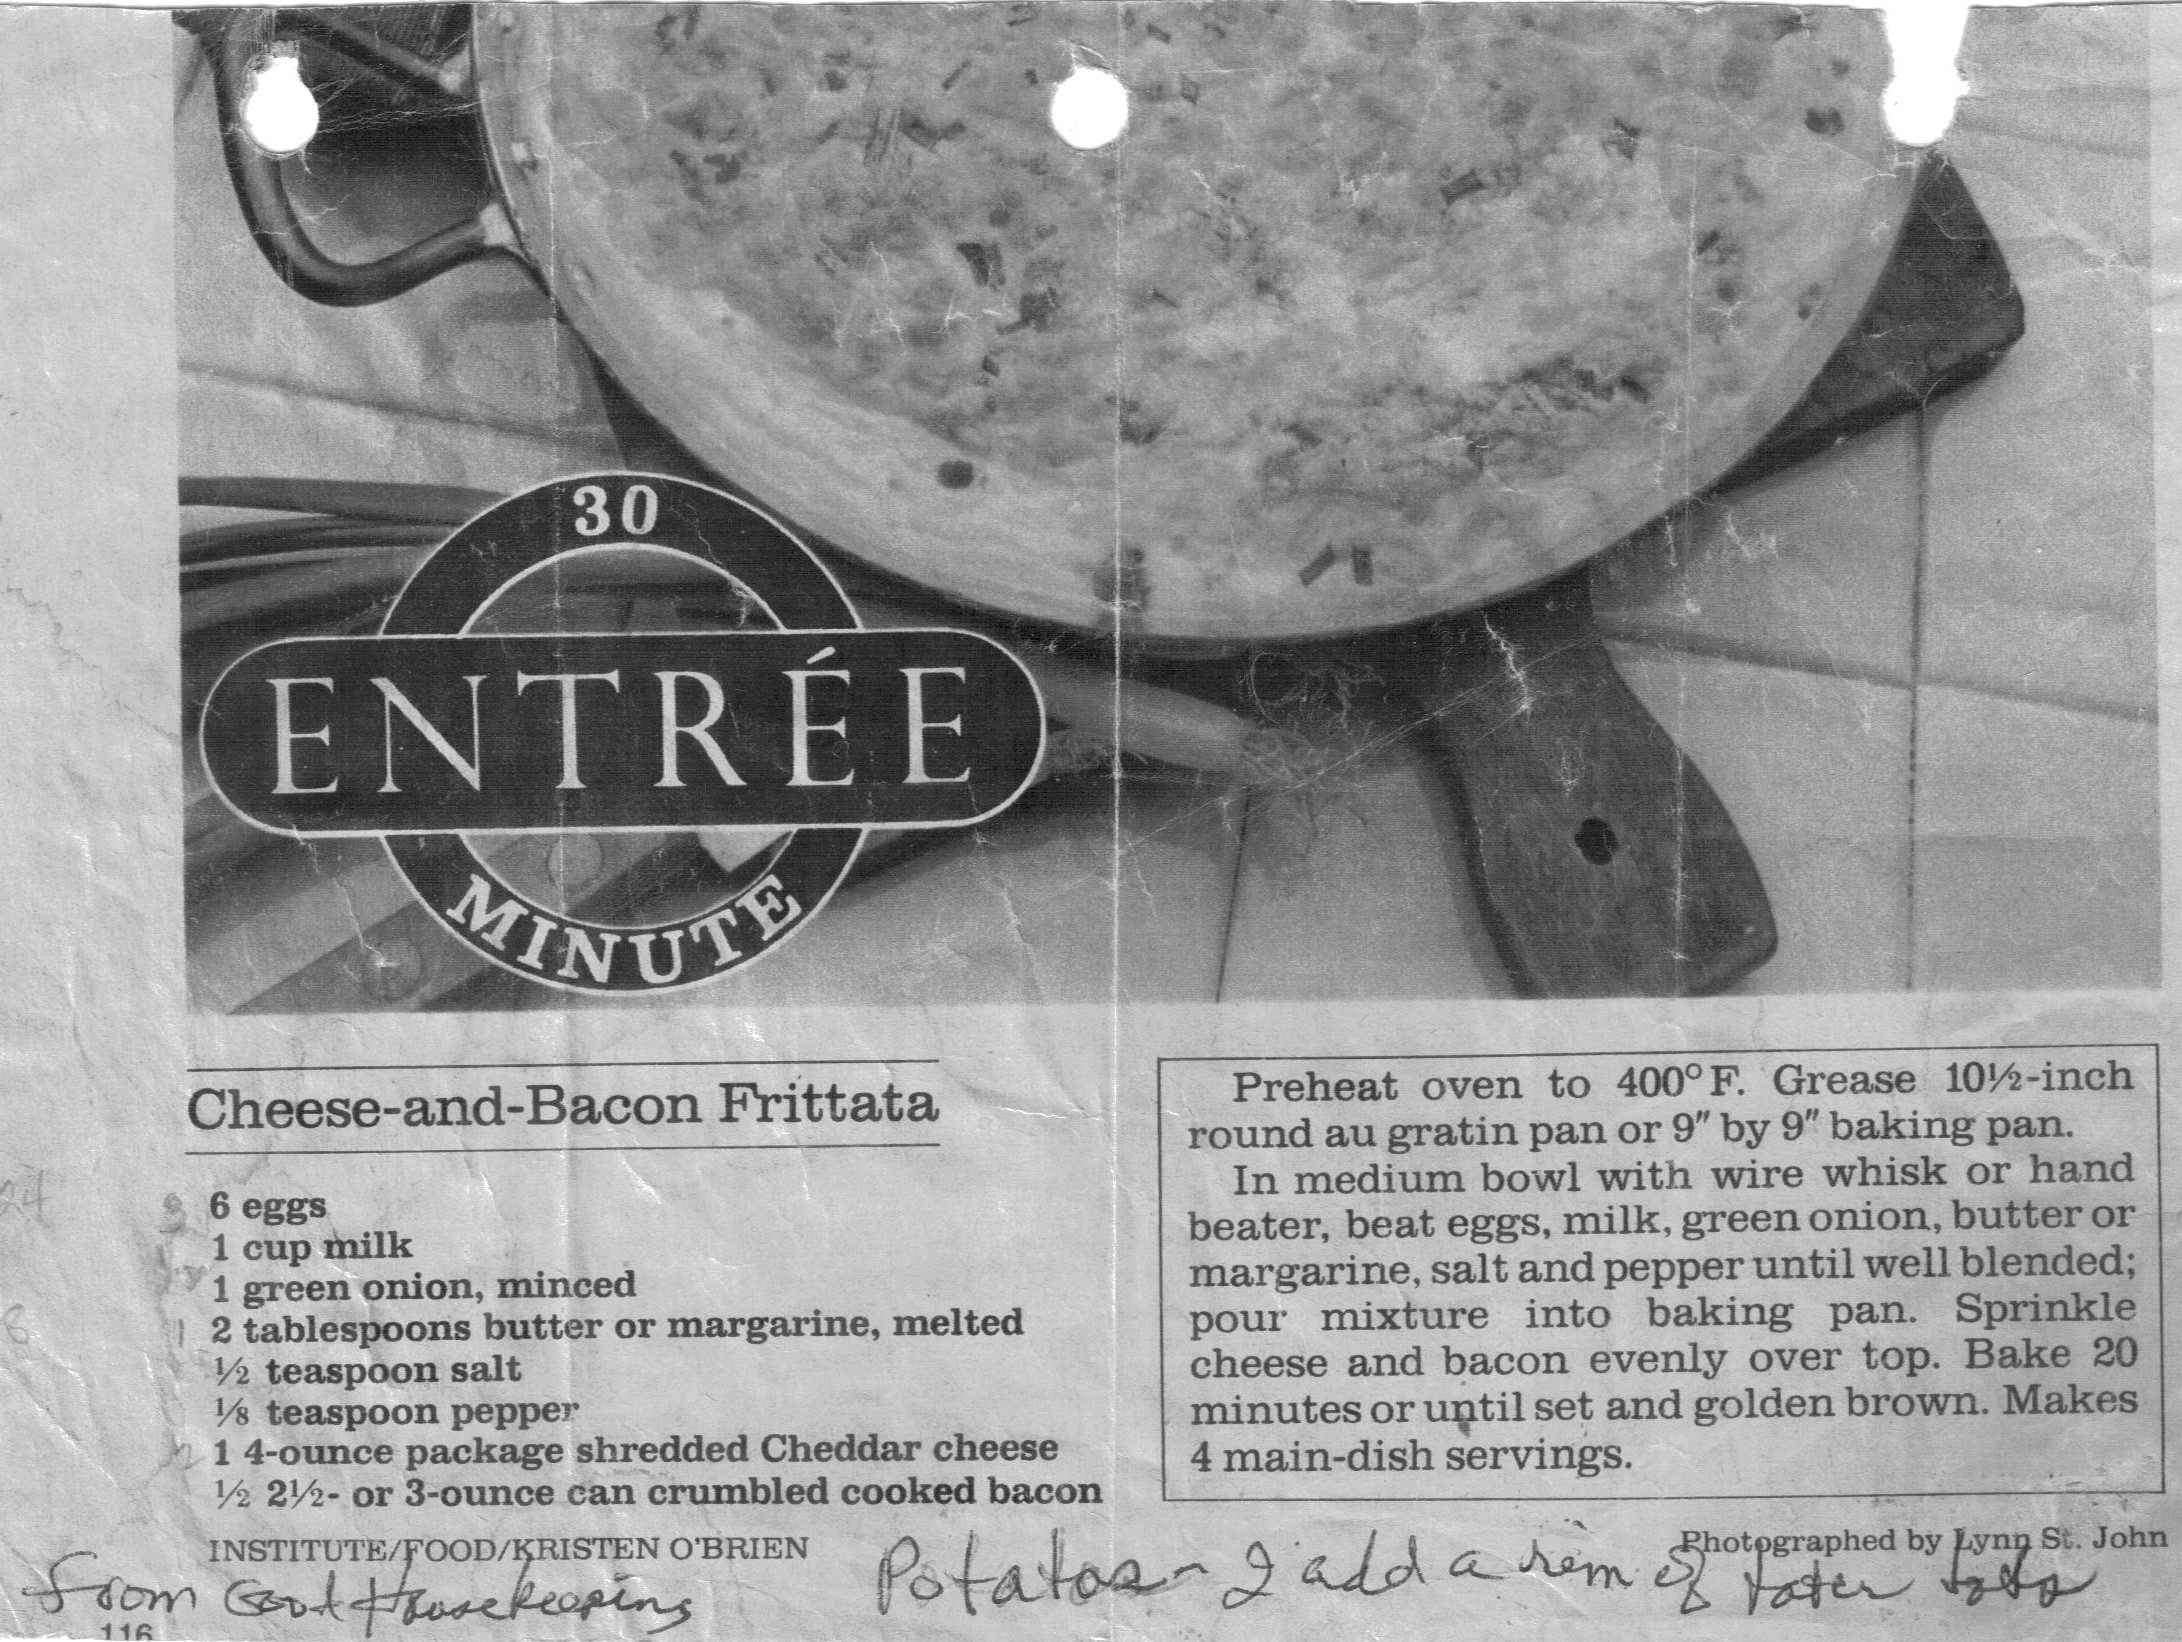 30
ENTRÉE
MINUTE
Cheese-and-Bacon Frittata
6 eggs
1 cup milk
1 green onion, minced
2 tablespoons butter or margarine, melted
½ teaspoon salt
⅛ teaspoon pepper
1 4-ounce package shredded Cheddar cheese
½ 2½- or 3-ounce can crumbled cooked bacon
INSTITUTE/FOOD/KRISTEN O'BRIEN
Preheat oven to 400°F. Grease 10½-inch
round au gratin pan or 9″ by 9″ baking pan.
In medium bowl with wire whisk or hand
beater, beat eggs, milk, green onion, butter or
margarine, salt and pepper until well blended;
pour mixture into baking pan. Sprinkle
cheese and bacon evenly over top. Bake 20
minutes or until set and golden brown. Makes
4 main-dish servings.
Photographed by Lynn St. John
From Good Housekeeping
Potatoes - I add a rim of tater tots
116
24
8
3
1
2